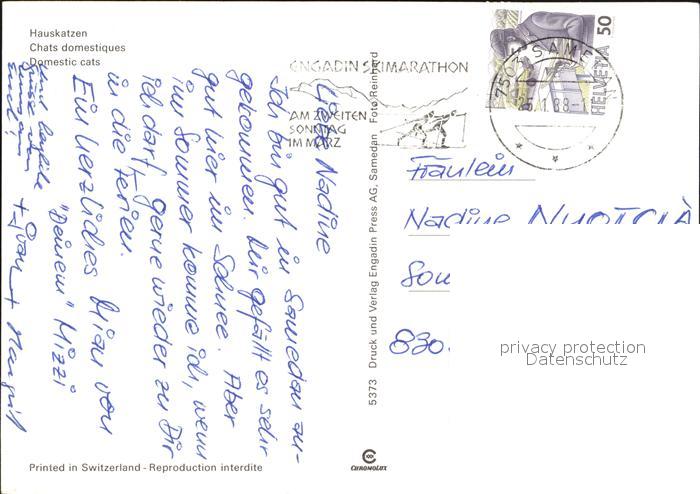 Hauskatzen
Chats domestiques
Domestic cats
ENGADIN SKIMARATHON
AM ZWEITEN
SONNTAG
IM MÄRZ
7503 SAMEDAN
88
HELVETIA 50
Liebe Nadine
Ich bin gut in Samedan zu-
gekommen. Mir gefällt es sehr
gut hier im Schnee. Aber
im Sommer komme ich, wenn
ich darf, gerne wieder zu Dir
in die Ferien.
Ein herzliches Miau von
"Deinem" Mizzi
und herzliche
Grüsse
euch!
Fräulein
Nadine
830
5373 Druck und Verlag Engadin Press AG, Samedan Foto Reinhard
privacy protection
Datenschutz
Printed in Switzerland - Reproduction interdite
CHROMOLUX